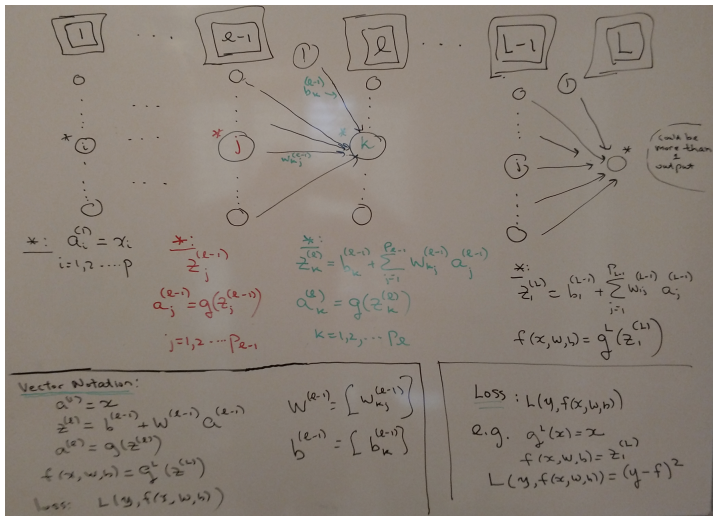 1 .... ℓ-1 ℓ .... L-1 L
1
b_k^(ℓ-1) →
1
* i
* j
* k
w_kj^(ℓ-1)
j
*
could be
more than
1
output
*: a_i^(1) = x_i
i=1,2 .... p
*:
z_j^(ℓ-1)
a_j^(ℓ-1) = g(z_j^(ℓ-1))
j=1,2 .... p_ℓ-1
*:
z_k^(ℓ) = b_k^(ℓ-1) + Σ_{j=1}^{p_ℓ-1} w_kj^(ℓ-1) a_j^(ℓ-1)
a_k^(ℓ) = g(z_k^(ℓ))
k=1,2, ... p_ℓ
*:
z_1^(L) = b_1^(L-1) + Σ_{j=1}^{p_L-1} w_1j^(L-1) a_j^(L-1)
f(x,w,b) = g^L(z_1^(L))
Vector Notation:
a^(1) = x
z^(ℓ) = b^(ℓ-1) + W^(ℓ-1) a^(ℓ-1)
a^(ℓ) = g(z^(ℓ))
f(x,w,b) = g^L(z^(L))
Loss: L(y, f(x,w,b))
W^(ℓ-1) = [w_kj^(ℓ-1)]
b^(ℓ-1) = [b_k^(ℓ-1)]
Loss: L(y,f(x,w,b))
e.g. g^L(x) = x
f(x,w,b) = z_1^(L)
L(y, f(x,w,b)) = (y-f)^2